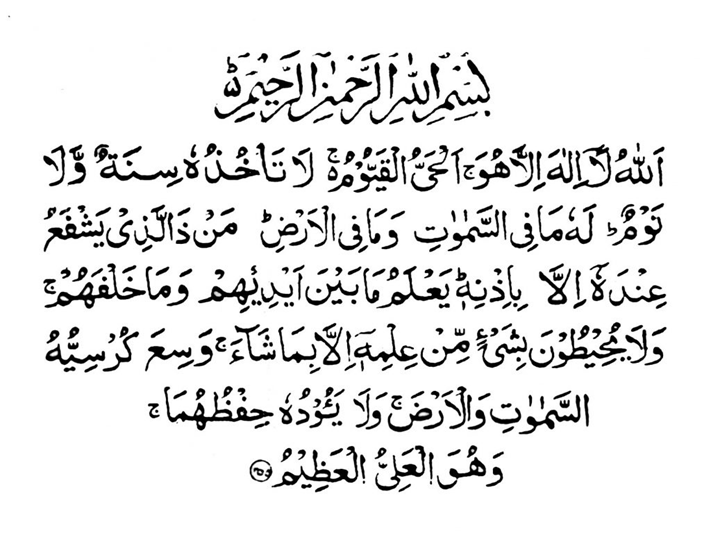 بِسْمِ اللهِ الرَّحْمٰنِ الرَّحِيْمِ ؕ
اَللهُ لَاۤ اِلٰهَ اِلَّا هُوَ ۚ اَلْحَىُّ الْقَيُّوْمُ ۚ لَا تَاْخُذُهٗ سِنَةٌ وَّلَا
نَوْمٌ ؕ لَهٗ مَا فِى السَّمٰوٰتِ وَمَا فِى الْاَرْضِ ؕ مَنْ ذَا الَّذِىْ يَشْفَعُ
عِنْدَهٗۤ اِلَّا بِاِذْنِهٖ ؕ يَعْلَمُ مَا بَيْنَ اَيْدِيْهِمْ وَمَا خَلْفَهُمْ ۚ
وَلَا يُحِيْطُوْنَ بِشَىْءٍ مِّنْ عِلْمِهٖۤ اِلَّا بِمَا شَآءَ ۚ وَسِعَ كُرْسِيُّهُ
السَّمٰوٰتِ وَالْاَرْضَ ۚ وَلَا يَـُٔوْدُهٗ حِفْظُهُمَا ۚ
وَهُوَ الْعَلِىُّ الْعَظِيْمُ ۝۲۵۵